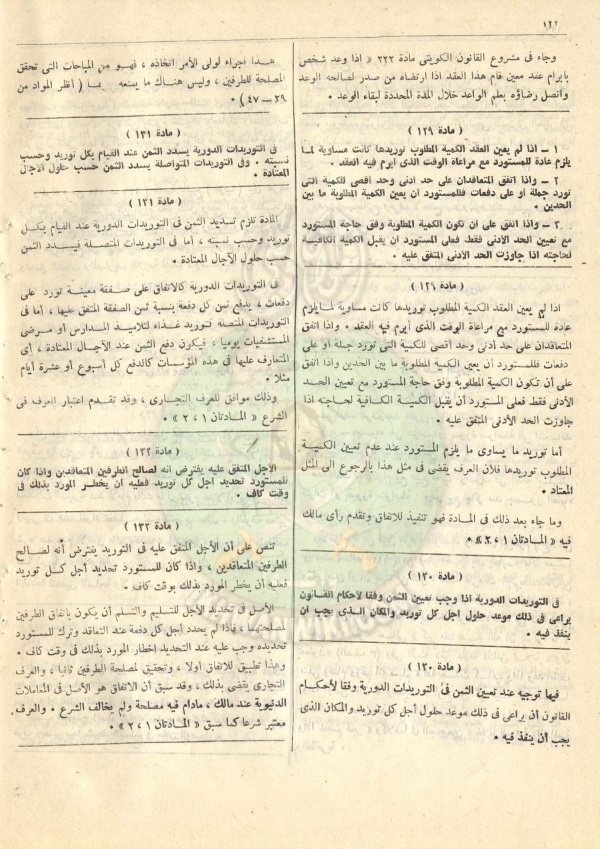 ١٢٢
وجاء فى مشروع القانون الكويتى مادة ٢٢٣ « اذا وعد شخص
بابرام عند معين قام هذا العقد اذا ارتضاه من صدر لصالحه الوعد
واتصل رضاؤه بعلم الواعد خلال المدة المحددة لبقاء الوعد .
( مادة ١٢٩ )
١ ــ اذا لم يعين العقد الكمية المطلوب توريدها كانت مساوية لما
يلزم عادة للمستورد مع مراعاة الوقت الذى ابرم فيه العقد .
٢ ــ واذا اتفق المتعاقدان على حد ادنى وحد اقصى للكمية التى
تورد جملة او على دفعات فللمستورد أن يعين الكمية المطلوبة ما بين
الحدين .
٣ ــ واذا اتفق على ان تكون الكمية المطلوبة وفق حاجة المستورد
مع تعيين الحد الأدنى فقط فعلى المستورد ان يقبل الكمية الكافية
لحاجته اذا جاوزت الحد الأدنى المتفق عليه .
( مادة ١٢٩ )
اذا لم يعين العقد الكمية المطلوب توريدها كانت مساوية لما يلزم
عادة للمستورد مع مراعاة الوقت الذى أبرم فيه العقد . واذا اتفق
المتعاقدان على حد أدنى وحد أقصى للكمية التى تورد جملة أو على
دفعات فللمستورد أن يعين الكمية المطلوبة ما بين الحدين واذا اتفق
على أن تكون الكمية المطلوبة وفق حاجة المستورد مع تعيين الحد
الأدنى فقط فعلى المستورد أن يقبل الكمية الكافية لحاجته اذا
جاوزت الحد الأدنى المتفق عليه .
أما توريد ما يساوى ما يلزم المستورد عند عدم تعيين الكمية
المطلوب توريدها فلأن العرف يقضى فى مثل هذا بالرجوع الى المثل
المعتاد .
وما جاء بعد ذلك فى المادة فهو تنفيذ للاتفاق وتقدم رأى مالك
فيه « المادتان ١ ، ٢ » .
( مادة ١٣٠ )
فى التوريدات الدورية اذا وجب تعيين الثمن وفقا لأحكام القانون
يراعى فى ذلك موعد حلول اجل كل توريد والمكان الذى يجب ان
ينفذ فيه .
( مادة ١٣٠ )
فيها توجيه عند تعيين الثمن فى التوريدات الدورية وفقا لأحكام
القانون أن يراعى فى ذلك موعد حلول أجل كل توريد والمكان الذى
يجب أن ينفذ فيه .
هذا اجراء لولى الأمر اتخاذه ، فهو من المباحات التى تحقق
المصلحة للطرفين ، وليس هناك ما يمنعه ( أنظر المواد من
٣٩ ــ ٤٧ ) .
( مادة ١٣١ )
فى التوريدات الدورية يسدد الثمن عند القيام بكل توريد وحسب
نسبته . وفى التوريدات المتواصلة يسدد الثمن حسب حلول الآجال
المعتادة .
( مادة ١٣١ )
المادة تلزم تسديد الثمن فى التوريدات الدورية عند القيام بكل
توريد وحسب نسبته ، أما فى التوريدات المتصلة فيسدد الثمن
حسب حلول الآجال المعتادة .
فى التوريدات الدورية كالاتفاق على صفقة معينة تورد على
دفعات ، يدفع ثمن كل دفعة بنسبة ثمن الصفقة المتفق عليها ، أما فى
التوريدات المتصلة كتوريد غذاء لتلاميذ المدارس أو مرضى
المستشفيات يوميا ، فيكون دفع الثمن عند الآجال المعتادة ، أى
المتعارف عليها فى هذه المؤسسات كالدفع كل أسبوع أو عشرة أيام
مثلا .
وذلك موافق للعرف التجارى ، وقد تقدم اعتبار العرف فى
الشرع « المادتان ١ ، ٢ » .
( مادة ١٣٢ )
الأجل المتفق عليه يفترض انه لصالح الطرفين المتعاقدين واذا كان
للمستورد تحديد أجل كل توريد فعليه ان يخطر المورد بذلك فى
وقت كاف .
( مادة ١٣٢ )
تنص على أن الأجل المتفق عليه فى التوريد يفترض أنه لصالح
الطرفين المتعاقدين ، واذا كان للمستورد تحديد أجل كل توريد
فعليه أن يخطر المورد بذلك بوقت كاف .
الأصل فى تحديد الأجل للتسليم والتسلم أن يكون باتفاق الطرفين
لمصلحتهما ، فاذا لم يحدد أجل كل دفعة عند التعاقد وترك للمستورد
تحديده وجب عليه عند التحديد اخطار المورد بذلك فى وقت كاف .
وهذا تطبيق للاتفاق اولا ، وتحقيق لمصلحة الطرفين ثانيا ، والعرف
التجارى يقضى بذلك ، وقد سبق أن الاتفاق هو الأصل فى المعاملات
الدنيوية عند مالك ، مادام فيه مصلحة ولم يخالف الشرع . والعرف
معتبر شرعا كما سبق « المادتان ١ ، ٢ » .